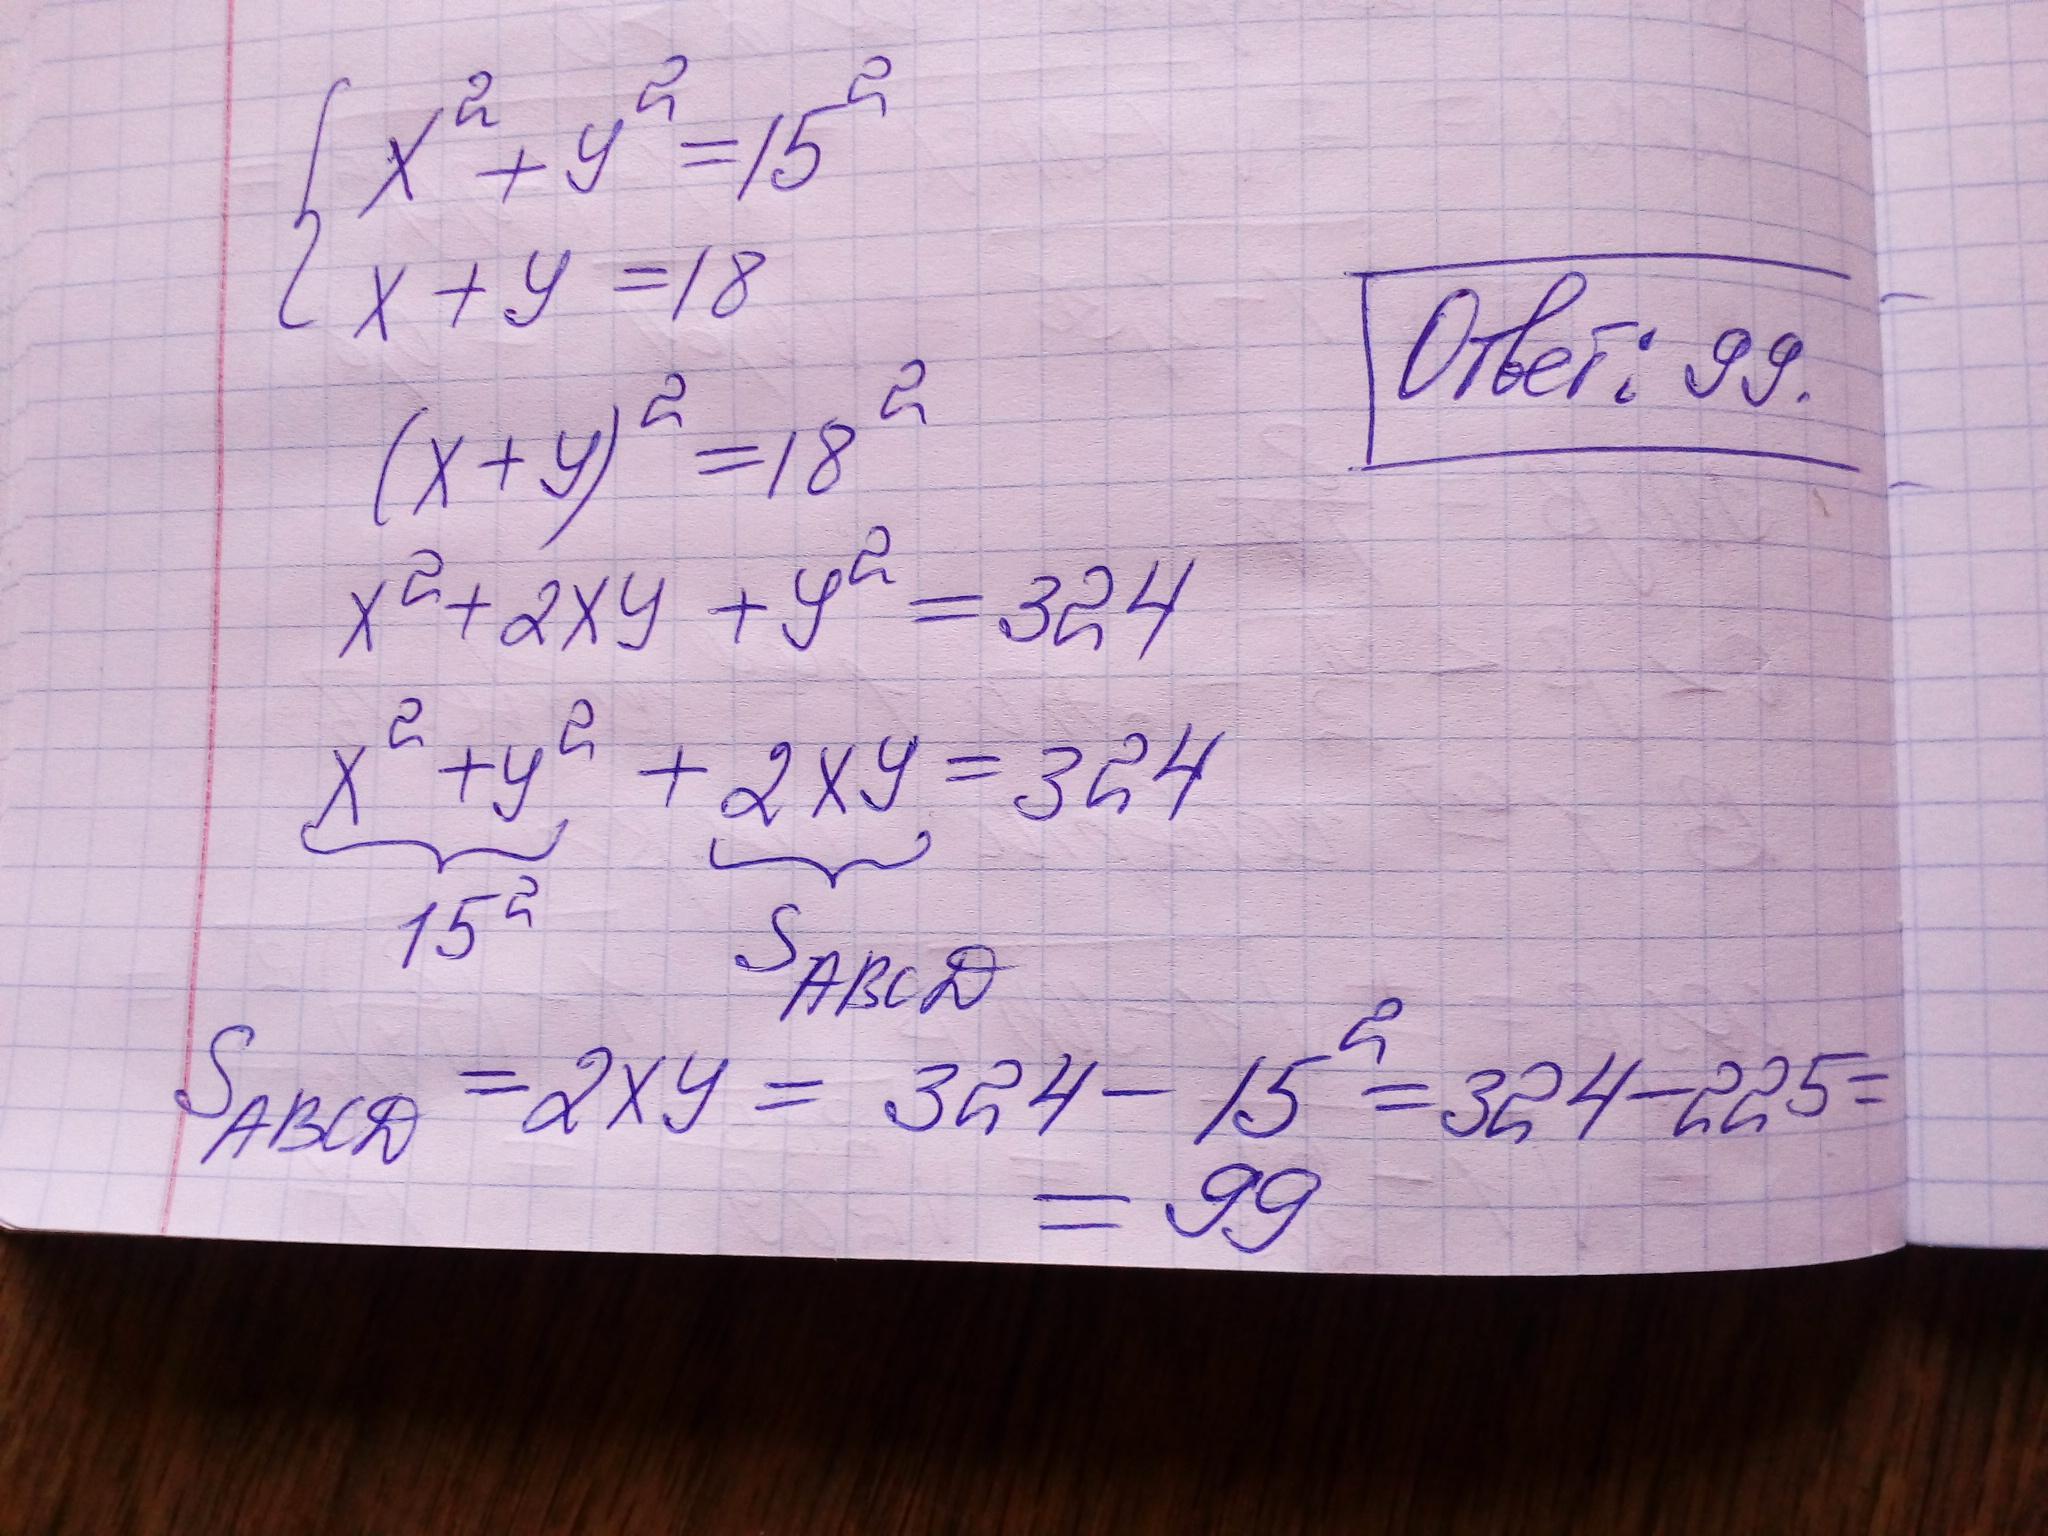 x² + y² = 15²
x + y = 18
(x + y)² = 18²
x² + 2xy + y² = 324
x² + y² + 2xy = 324
15² S_ABCD
S_ABCD = 2xy = 324 - 15² = 324 - 225 =
= 99
Ответ: 99.